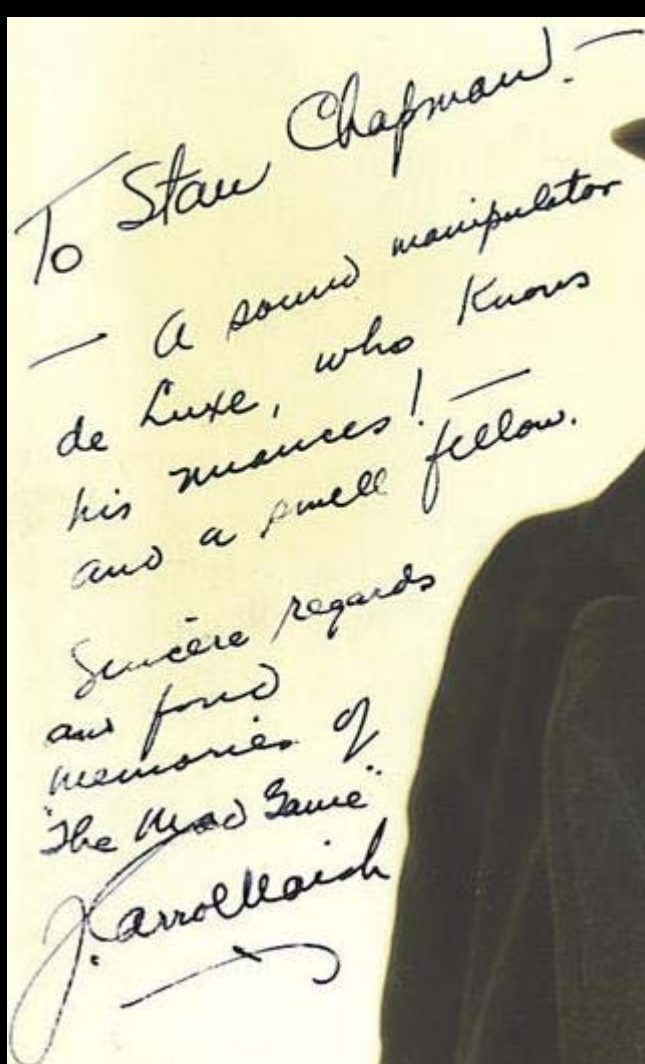 To Stan Chapman. —
— A sound manipulator
de Luxe, who Knows
his nuances! —
and a swell fellow.
Sincere regards
and fond
memories of
"The Mad Game"
J. Carrol Naish